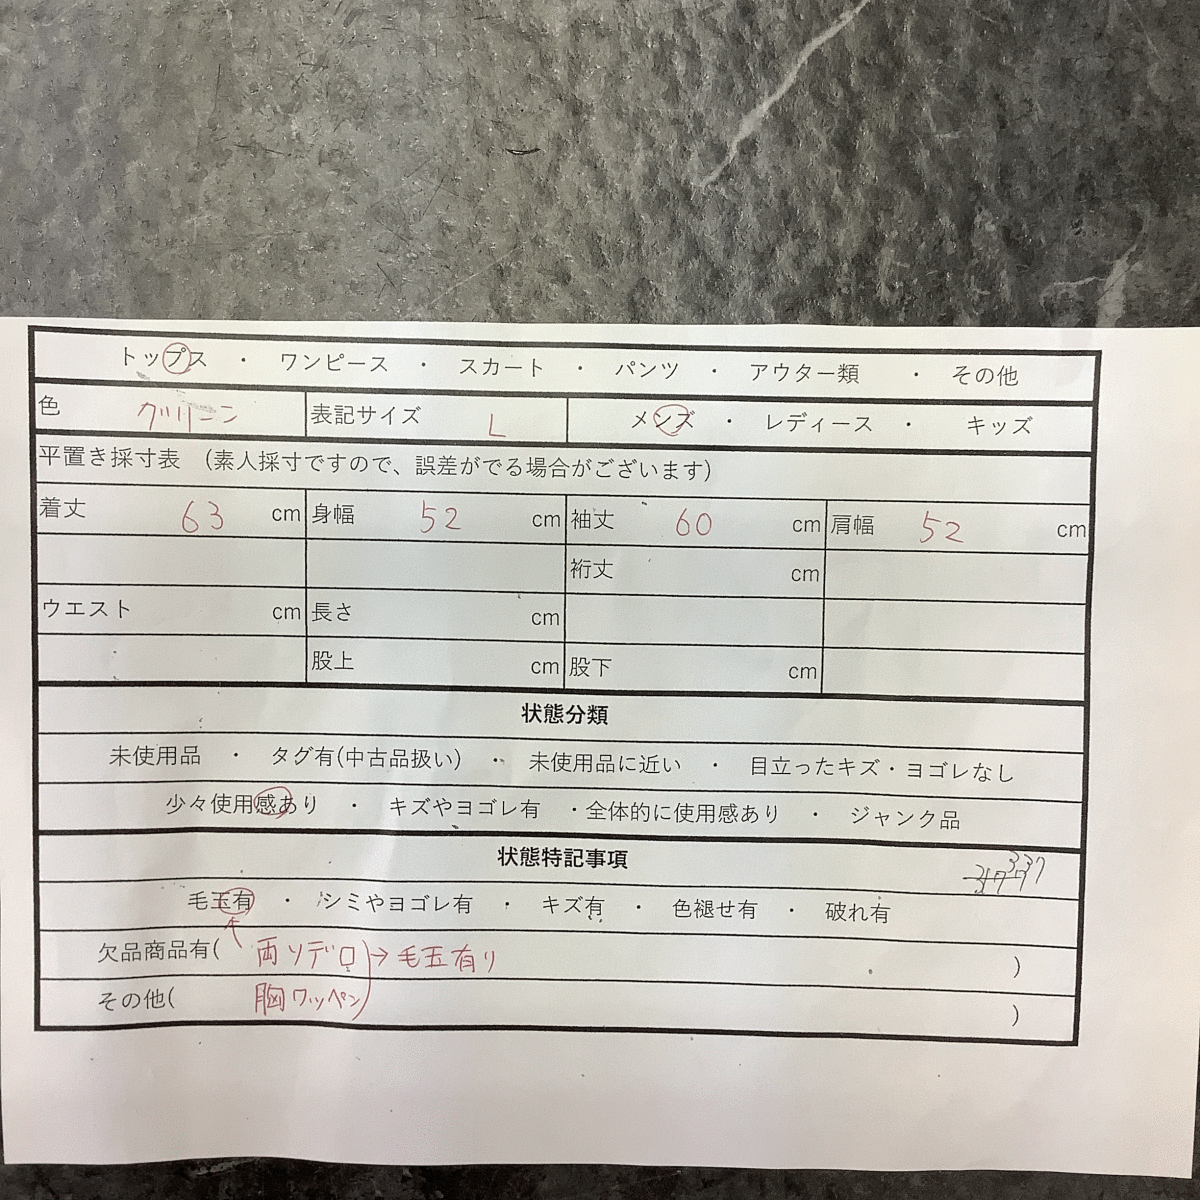 トップス ・ ワンピース ・ スカート ・ パンツ ・ アウター類 ・ その他
色 グリーン 表記サイズ L メンズ ・ レディース ・ キッズ
平置き採寸表 (素人採寸ですので、誤差がでる場合がございます)
着丈 63 cm 身幅 52 cm 袖丈 60 cm 肩幅 52 cm
裄丈 cm
ウエスト cm 長さ cm
股上 cm 股下 cm
状態分類
未使用品 ・ タグ有(中古品扱い) ・ 未使用品に近い ・ 目立ったキズ・ヨゴレなし
少々使用感あり ・ キズやヨゴレ有 ・全体的に使用感あり ・ ジャンク品
状態特記事項
毛玉有 ・ シミやヨゴレ有 ・ キズ有 ・ 色褪せ有 ・ 破れ有
欠品商品有( 両ソデ口 → 毛玉有り )
その他( 胸ワッペン )